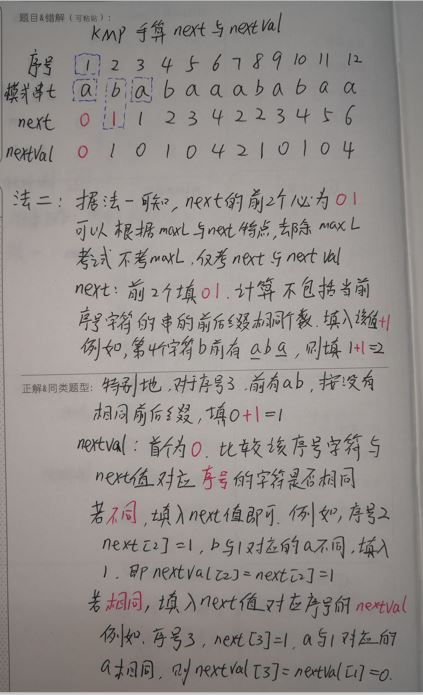 题目&错解（可粘贴）：
KMP 手算 next 与 nextval
序号 1 2 3 4 5 6 7 8 9 10 11 12
模式串t a b a b a a a b a b a a
next 0 1 1 2 3 4 2 2 3 4 5 6
nextval 0 1 0 1 0 4 2 1 0 1 0 4
法二：据法一联知，next的前2个必为01
可以根据maxL与next特点，去除maxL
考试不考maxL，仅考next与nextval
next：前2个填01．计算不包括当前
序号字符的串的前后缀相同个数．填入该值+1
例如，第4个字符b前有aba，则填1+1=2
正解&同类题型：特别地，对于序号3．前有ab，按没有
相同前后缀，填0+1=1
nextval：首个为0．比较该序号字符与
next值对应序号的字符是否相同
若不同，填入next值即可．例如，序号2
next[2]=1，b与1对应的a不同，填入
1．即nextval[2]=next[2]=1
若相同，填入next值对应序号的nextval
例如．序号3，next[3]=1．a与1对应的
a相同，则nextval[3]=nextval[1]=0.